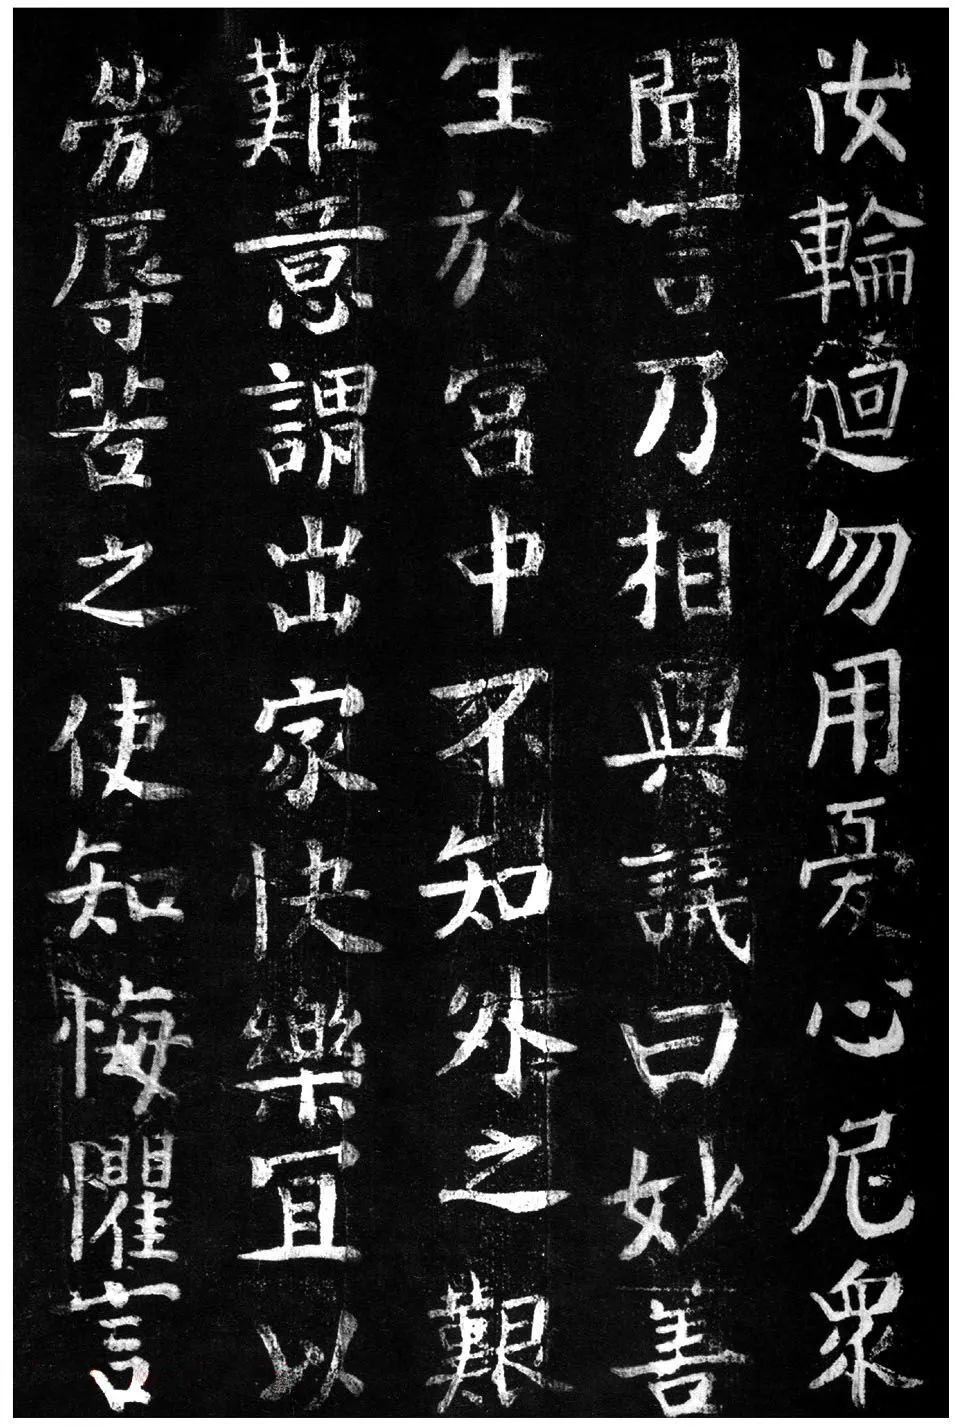 汝輪廻勿用憂心尼衆
聞言乃相與議曰妙善
生於宮中不知外之艱
難意謂出家快樂宜以
勞辱苦之使知悔懼言